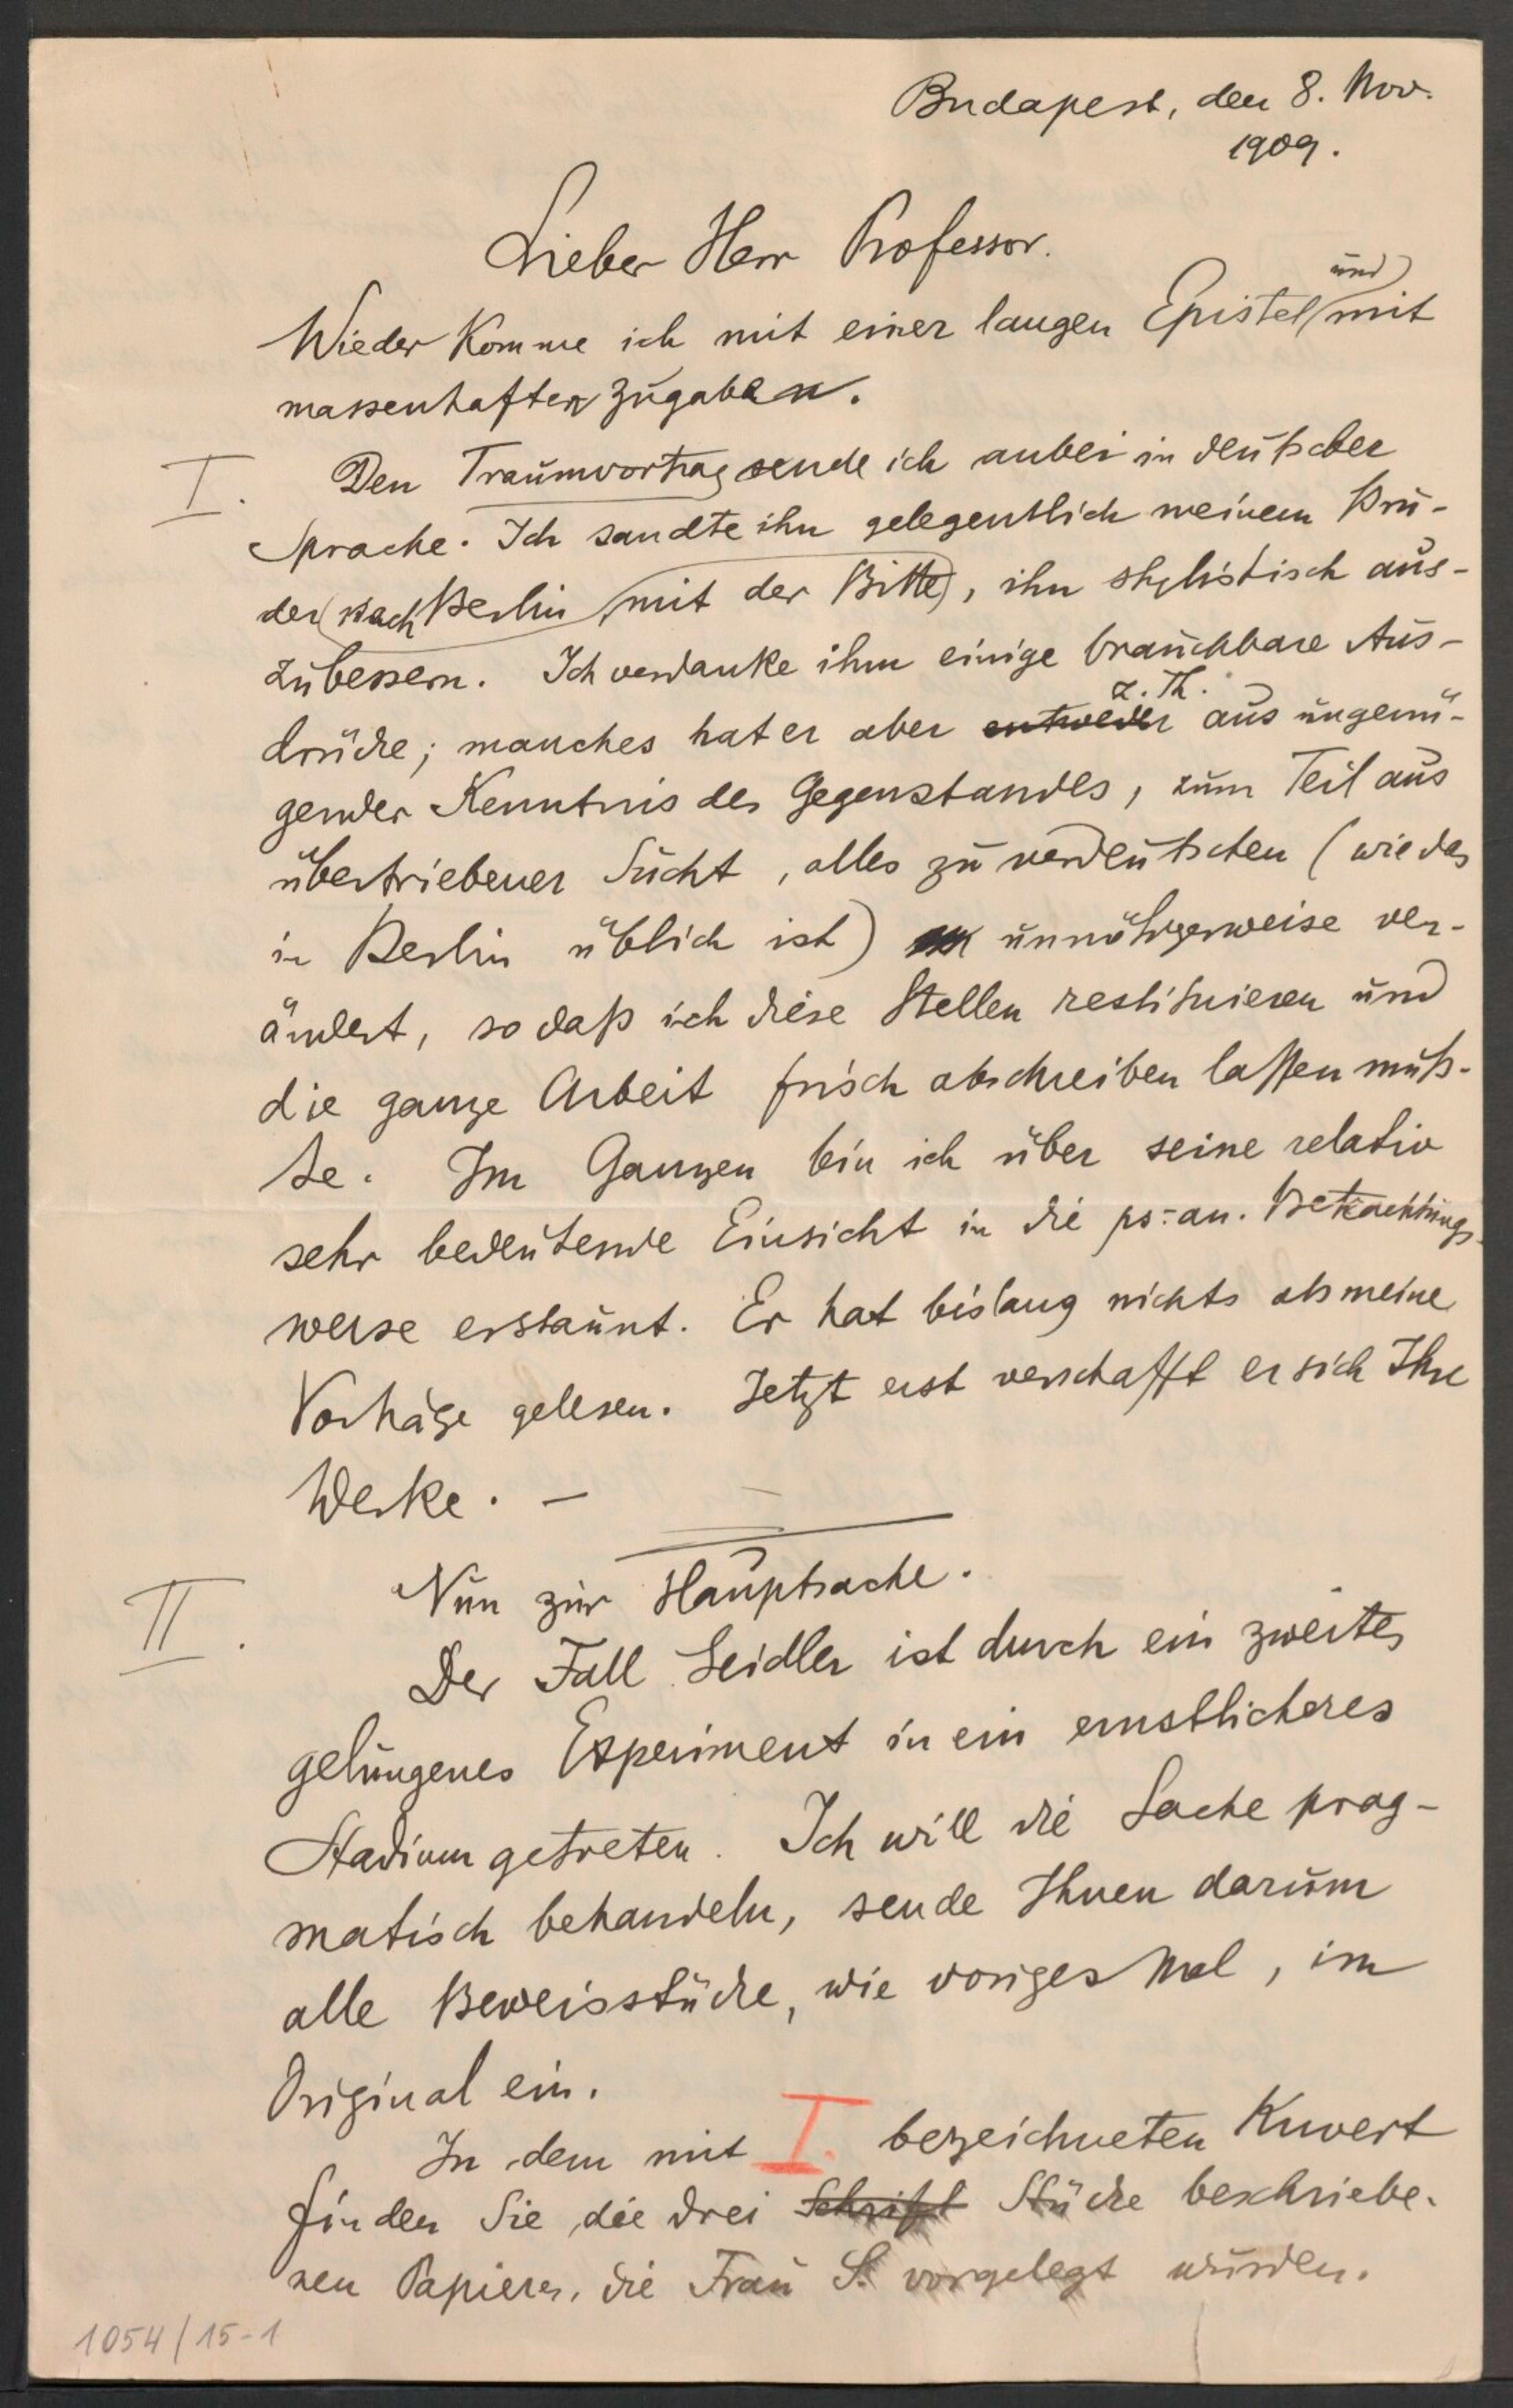 Budapest, den 8. Nov.
1909.
Lieber Herr Professor.
und
Wieder komme ich mit einer langen Epistel mit
massenhaften Zugaben.
I. Den Traumvortrag sende ich anbei in deutscher
Sprache. Ich sandte ihn gelegentlich meinem Bru-
der nach Berlin mit der Bitte, ihn stylistisch aus-
zubessern. Ich verdanke ihm einige brauchbare Aus-
z. Th.
drücke; manches hat er aber entweder aus ungenü-
gender Kenntnis des Gegenstandes, zum Teil aus
übertriebener Sucht, alles zu verdeutschen (wie das
in Berlin üblich ist) unnötigerweise ver-
ändert, so daß ich diese Stellen restituieren und
die ganze Arbeit frisch abschreiben lassen muß-
te. Im Ganzen bin ich über seine relativ
sehr bedeutende Einsicht in die ps:an. Betrachtungs-
weise erstaunt. Er hat bislang nichts als meine
Vorträge gelesen. Jetzt erst verschafft er sich Ihre
Werke. —
II. Nun zur Hauptsache.
Der Fall Seidler ist durch ein zweites
gelungenes Experiment in ein ernstlicheres
Stadium getreten. Ich will die Sache prag-
matisch behandeln, sende Ihnen darum
alle Beweisstücke, wie voriges Mal, im
Original ein.
In dem mit I. bezeichneten Kuvert
finden Sie die drei Schrift Stücke beschriebe-
nen Papieres, die Frau S. vorgelegt wurden.
1054/15-1